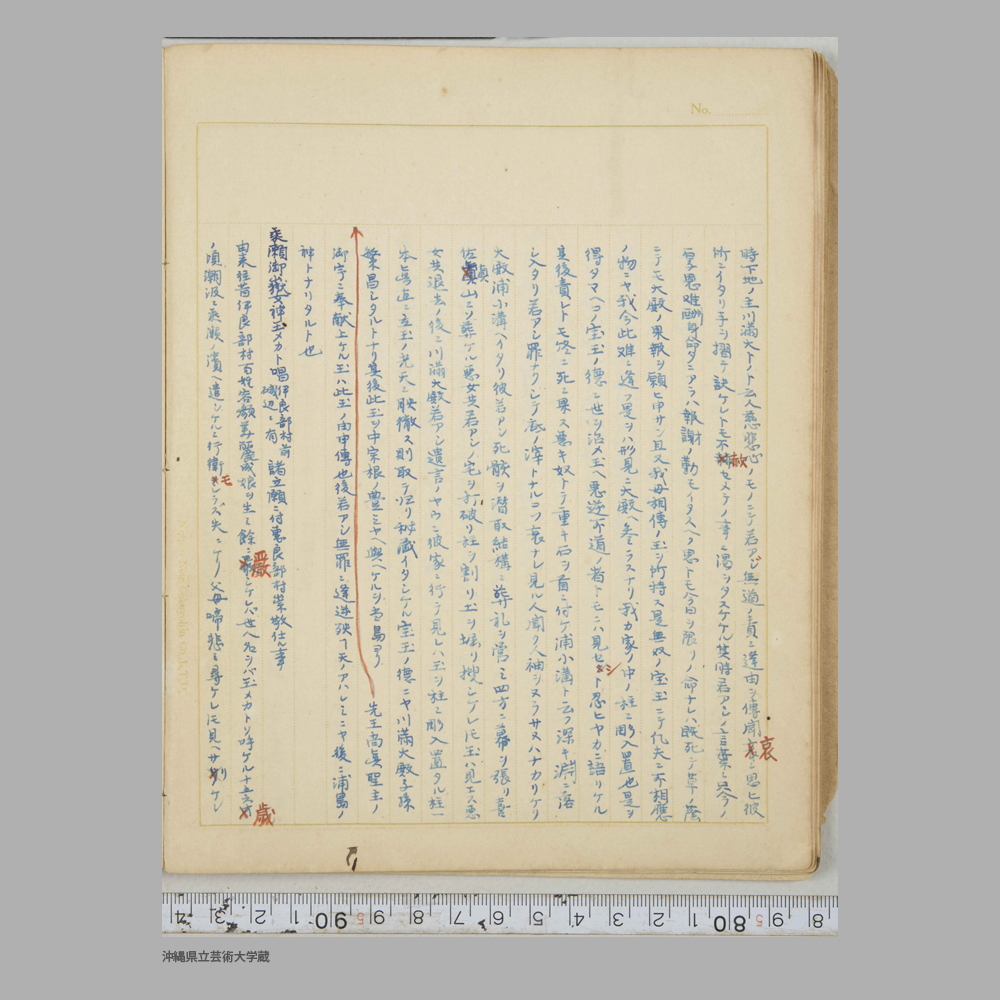 No.
時下地ノ主川満大トノト云人慈悲心ノモノニシテ若アジ無道ノ責ニ逢由ヲ傳聞哀ニ思ヒ彼
所ニイタリ手ヲ摺テ訣ケレトモ不赦セメテノ事ニ湯ヲタスケケル其時若アシノ言葉ニ只今ノ
厚恩難酬身命タニアラハ報謝ノ勤モイタスヘク思トモ今日ヲ限リノ命ナレハ既死テ草ノ蔭
ニテモ大殿ノ果報ヲ願ヒ申サン且又我母相傳ノ玉ヲ所持ス是無双ノ宝玉ニテ凡夫ニ不相應
ノ物ニヤ我今此難ニ逢フ是ヲハ形見ニ大殿ヘ参ラスナリ我カ家ノ中ノ柱ニ彫入置也是ヲ
得タマヘコノ宝玉ノ德ニ世ヲ治メ玉ヘ悪逆不道ノ者トモニハ見セシト忍ヒヤカニ語リケル
其後責レトモ終ニ死ニ果ス悪キ奴トテ重キ石ヲ首ニ付ケ浦小溝ト云フ深キ淵ニ落
シ入タリ若アシ罪ナクシテ底ノ滓トナルコソ哀ナレ見ル人聞ク人袖ヲヌラサヌハナカリケリ
大殿浦小溝ヘイタリ彼若アシ死骸ヲ潜取結構ニ葬礼ヲ營ミ四方ニ幕ヲ張リ喜
佐真山ニソ葬ケル悪女共若アシノ宅ヲ打破リ柱ヲ割リ土ヲ堀リ捜シケレ𪜈玉ハ見エス悪
女共退去ノ後ニ川満大殿若アシ遺言ノヤウニ彼家ニ行テ見レハ玉ヲ柱ニ彫入置タル柱一
本真直ニ立玉ノ光天ニ映徹ス則取テ帰リ秘蔵イタシケル宝玉ノ德ニヤ川満大殿子孫
繁昌シタルトナリ其後此玉ヲ中宗根ノ豊ミヤヘ與ヘケルヲ當島ヨリ 先王尚真聖主ノ
御宇ニ奉献上ケル玉ハ此玉ノ由申傳也後若アシ無罪ニ逢逆殃了天ノアハレミニヤ後ニ浦島ノ
神トナリタルト也
乘瀬御嶽女神玉メカト唱伊良部村前磯辺ニ有 諸立願ニ付惠良部村崇敬仕ル事
由来往昔伊良部村百姓容顔美麗成娘ヲ生ミ餘ニ厳シケレバ世ヘ名ヲバ玉メカトソ呼ケル十五六歳
ノ頃潮汲ニ乘瀬ノ濱ヘ遣シケルニ行衛モシラス失ニケリ父母啼悲ミ尋ケレ𪜈見ヘサリケレ
4 3 2 1 90 9 8 7 6 5 4 3 2 1 80 9 8
沖縄県立芸術大学蔵